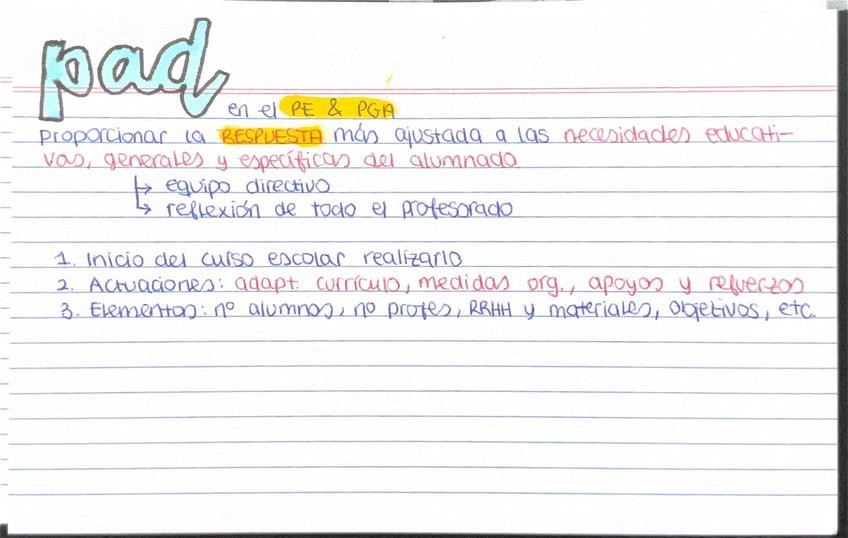 pad
en el PE & PGA
proporcionar la RESPUESTA más ajustada a las necesidades educati-
vas, generales y específicas del alumnado
↳ equipo directivo
↳ reflexión de todo el profesorado
1. Inicio del curso escolar realizarlo
2. Actuaciones: adapt. currículo, medidas org., apoyos y refuerzos
3. Elementos: nº alumnos, no profes, RRHH y materiales, objetivos, etc.